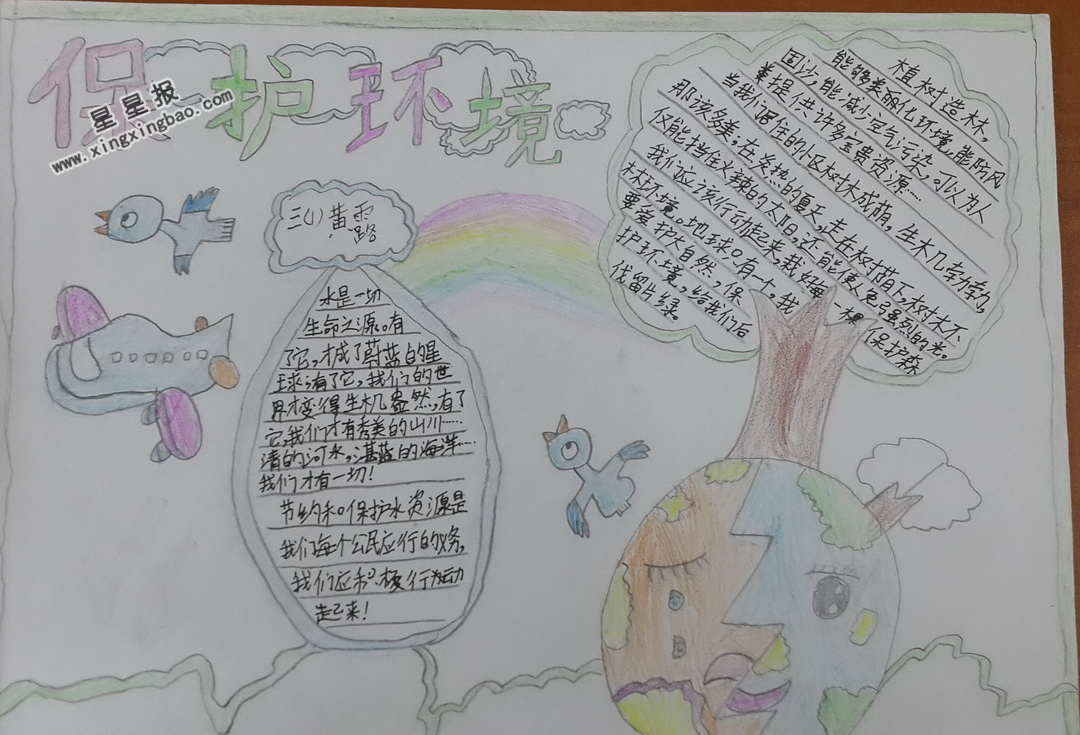 保护环境
星星报
www.xingxingbao.com
三(1)黄露
水是一切
生命之源。有
了它,才成了蔚蓝的星
球;有了它,我们的世
界才变得生机盎然,有了
它我们才有秀美的山川……
清的河水,湛蓝的海洋……
我们才有一切!
节约和保护水资源是
我们每个公民应行的义务,
我们应积极行动
起来!
植树造林,
能够美丽化环境,能防风
固沙,能减少空气污染,可以为人
类提供许多宝贵资源……
当我们居住的小区树木成荫,生机勃勃,
那该多美,在炎热的夏天,走在树荫下,树木不
仅能挡住火辣的太阳,还能使人免受强烈的光。
我们应该行动起来,栽好每一棵 保护森
林环境。地球只有一个,我
要爱护大自然,保
护环境,给我们后
代留片绿。